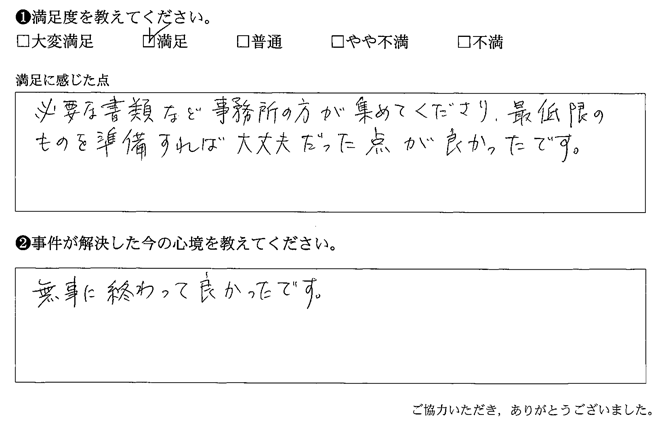 ❶満足度を教えてください。
□大変満足 ☑満足 □普通 □やや不満 □不満
満足に感じた点
必要な書類など事務所の方が集めてくださり、最低限の
ものを準備すれば大丈夫だった点が良かったです。
❷事件が解決した今の心境を教えてください。
無事に終わって良かったです。
ご協力いただき，ありがとうございました。